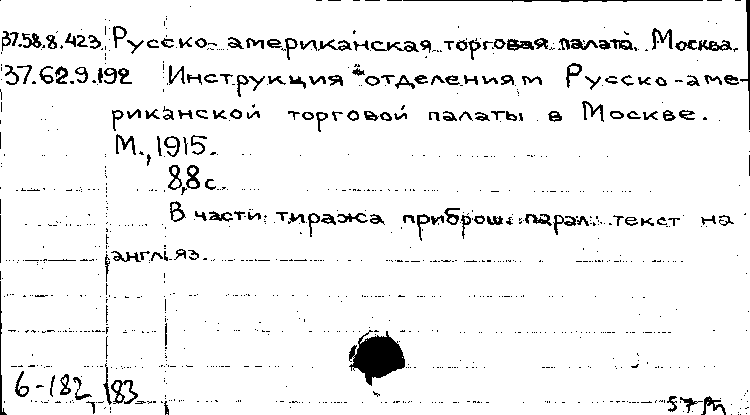 37.58.8.423 Русско-американская торговая палата. Москва.
37.62.9.192 Инструкция отделениям Русско-аме-
риканской торговой палаты в Москве.
М., 1915.
8,8 с.
В части тиража приброш. парал. текст на
англ. яз.
6-182 183
57